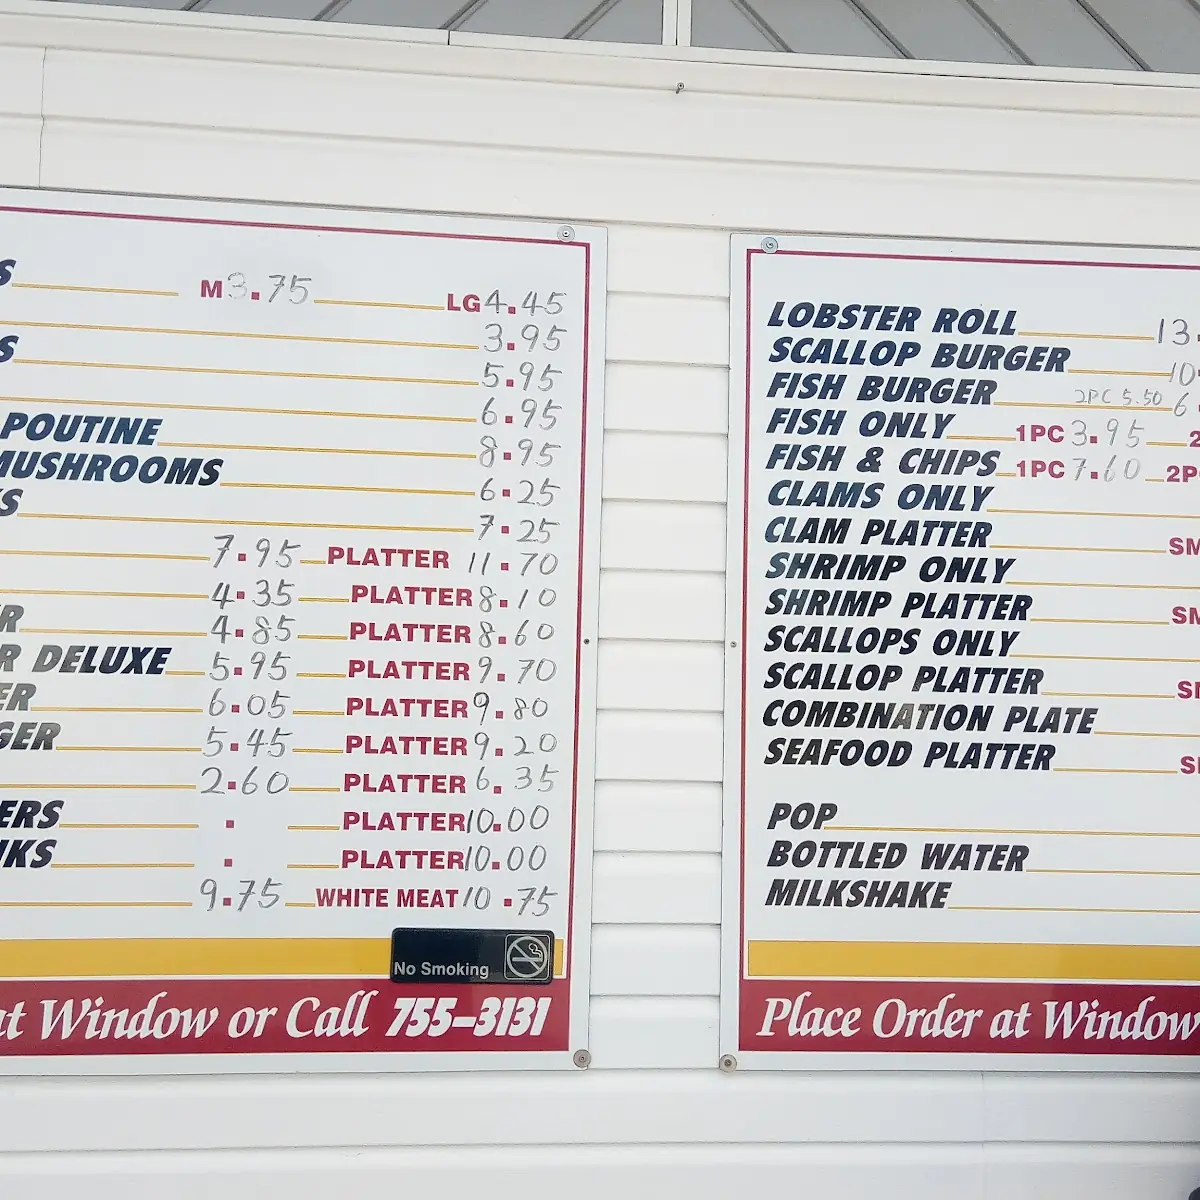 S M 3.75 LG 4.45
3.95
S 5.95
6.95
POUTINE 8.95
MUSHROOMS 6.25
KS 7.25
7.95 PLATTER 11.70
4.35 PLATTER 8.10
R 4.85 PLATTER 8.60
R DELUXE 5.95 PLATTER 9.70
ER 6.05 PLATTER 9.80
GER 5.45 PLATTER 9.20
2.60 PLATTER 6.35
ERS . PLATTER 10.00
NKS . PLATTER 10.00
9.75 WHITE MEAT 10.75
No Smoking
at Window or Call 755-3131
LOBSTER ROLL 13.
SCALLOP BURGER 10.
FISH BURGER 2PC 5.50 6.
FISH ONLY 1PC 3.95 2
FISH & CHIPS 1PC 7.60 2P
CLAMS ONLY
CLAM PLATTER SM
SHRIMP ONLY
SHRIMP PLATTER SM
SCALLOPS ONLY
SCALLOP PLATTER S
COMBINATION PLATE
SEAFOOD PLATTER S
POP
BOTTLED WATER
MILKSHAKE
Place Order at Window